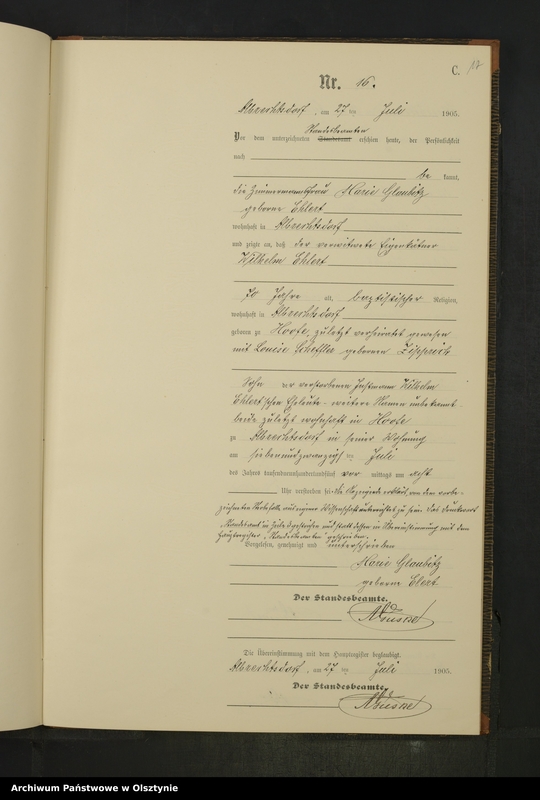 C. 17
Nr. 16.
Albrechtsdorf, am 27 ten Juli 1905.
Standesbeamten
Vor dem unterzeichneten Standesamt erschien heute, der Persönlichkeit
nach
be kannt,
die Zimmermannsfrau Marie Glaubitz
geborene Ehlert
wohnhaft in Albrechtsdorf
und zeigte an, daß der verwitwete Eigenkätner
Wilhelm Ehlert
70 Jahre alt, baptistischer Religion,
wohnhaft in Albrechtsdorf
geboren zu Hoofe, zuletzt verheiratet gewesen
mit Louise Scheffler geborenen
Sohn der verstorbenen Instmann Wilhelm
Ehlert'schen Eheleute - weitere Namen unbekannt
beide zuletzt wohnhaft in Hoofe
zu Albrechtsdorf in seiner Wohnung
am siebenundzwanzigsten Juli
des Jahres tausendneunhundertundfünf vor mittags um acht
Uhr verstorben sei. Die Anzeigende erklärt, von dem vorbe-
zeichneten Sterbefalle aus eigener Wissenschaft unterrichtet zu sein. Das Druckwort
"Standesamt" ist gestrichen und statt dessen in Übereinstimmung mit dem
Hauptregister "Standesbeamten" geschrieben.
Vorgelesen, genehmigt und unterschrieben
Marie Glaubitz
geborene Elert
Der Standesbeamte.
Die Übereinstimmung mit dem Hauptregister beglaubigt.
Albrechtsdorf, am 27 ten Juli 1905.
Der Standesbeamte.
Archiwum Państwowe w Olsztynie